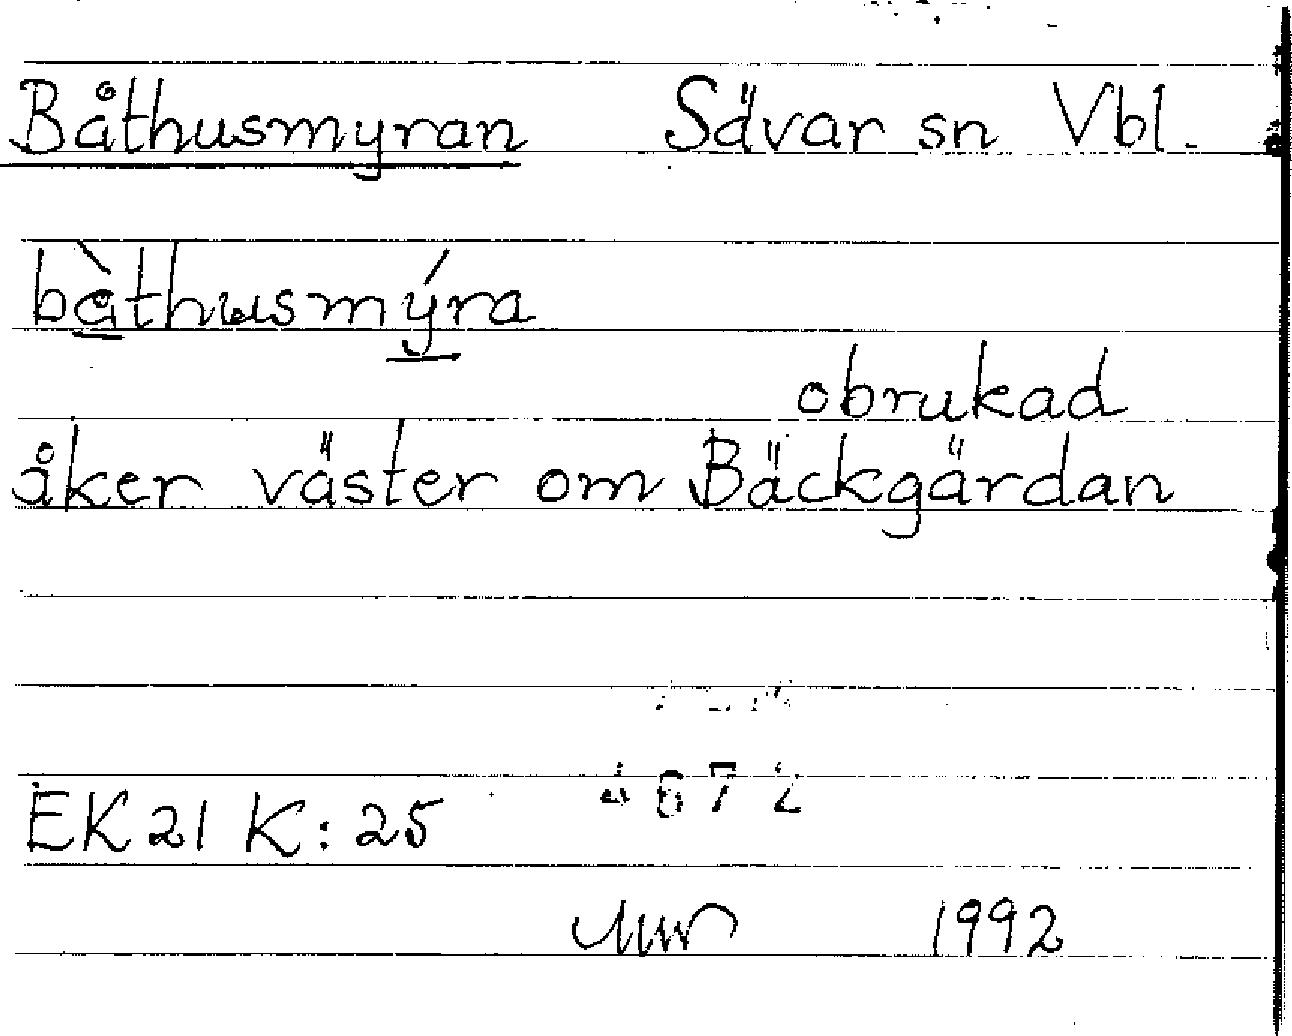 Båthusmyran Sävar sn Vbl.
bå̀thusmýra
obrukad
åker väster om Bäckgärdan
EK 21 K: 25
1992